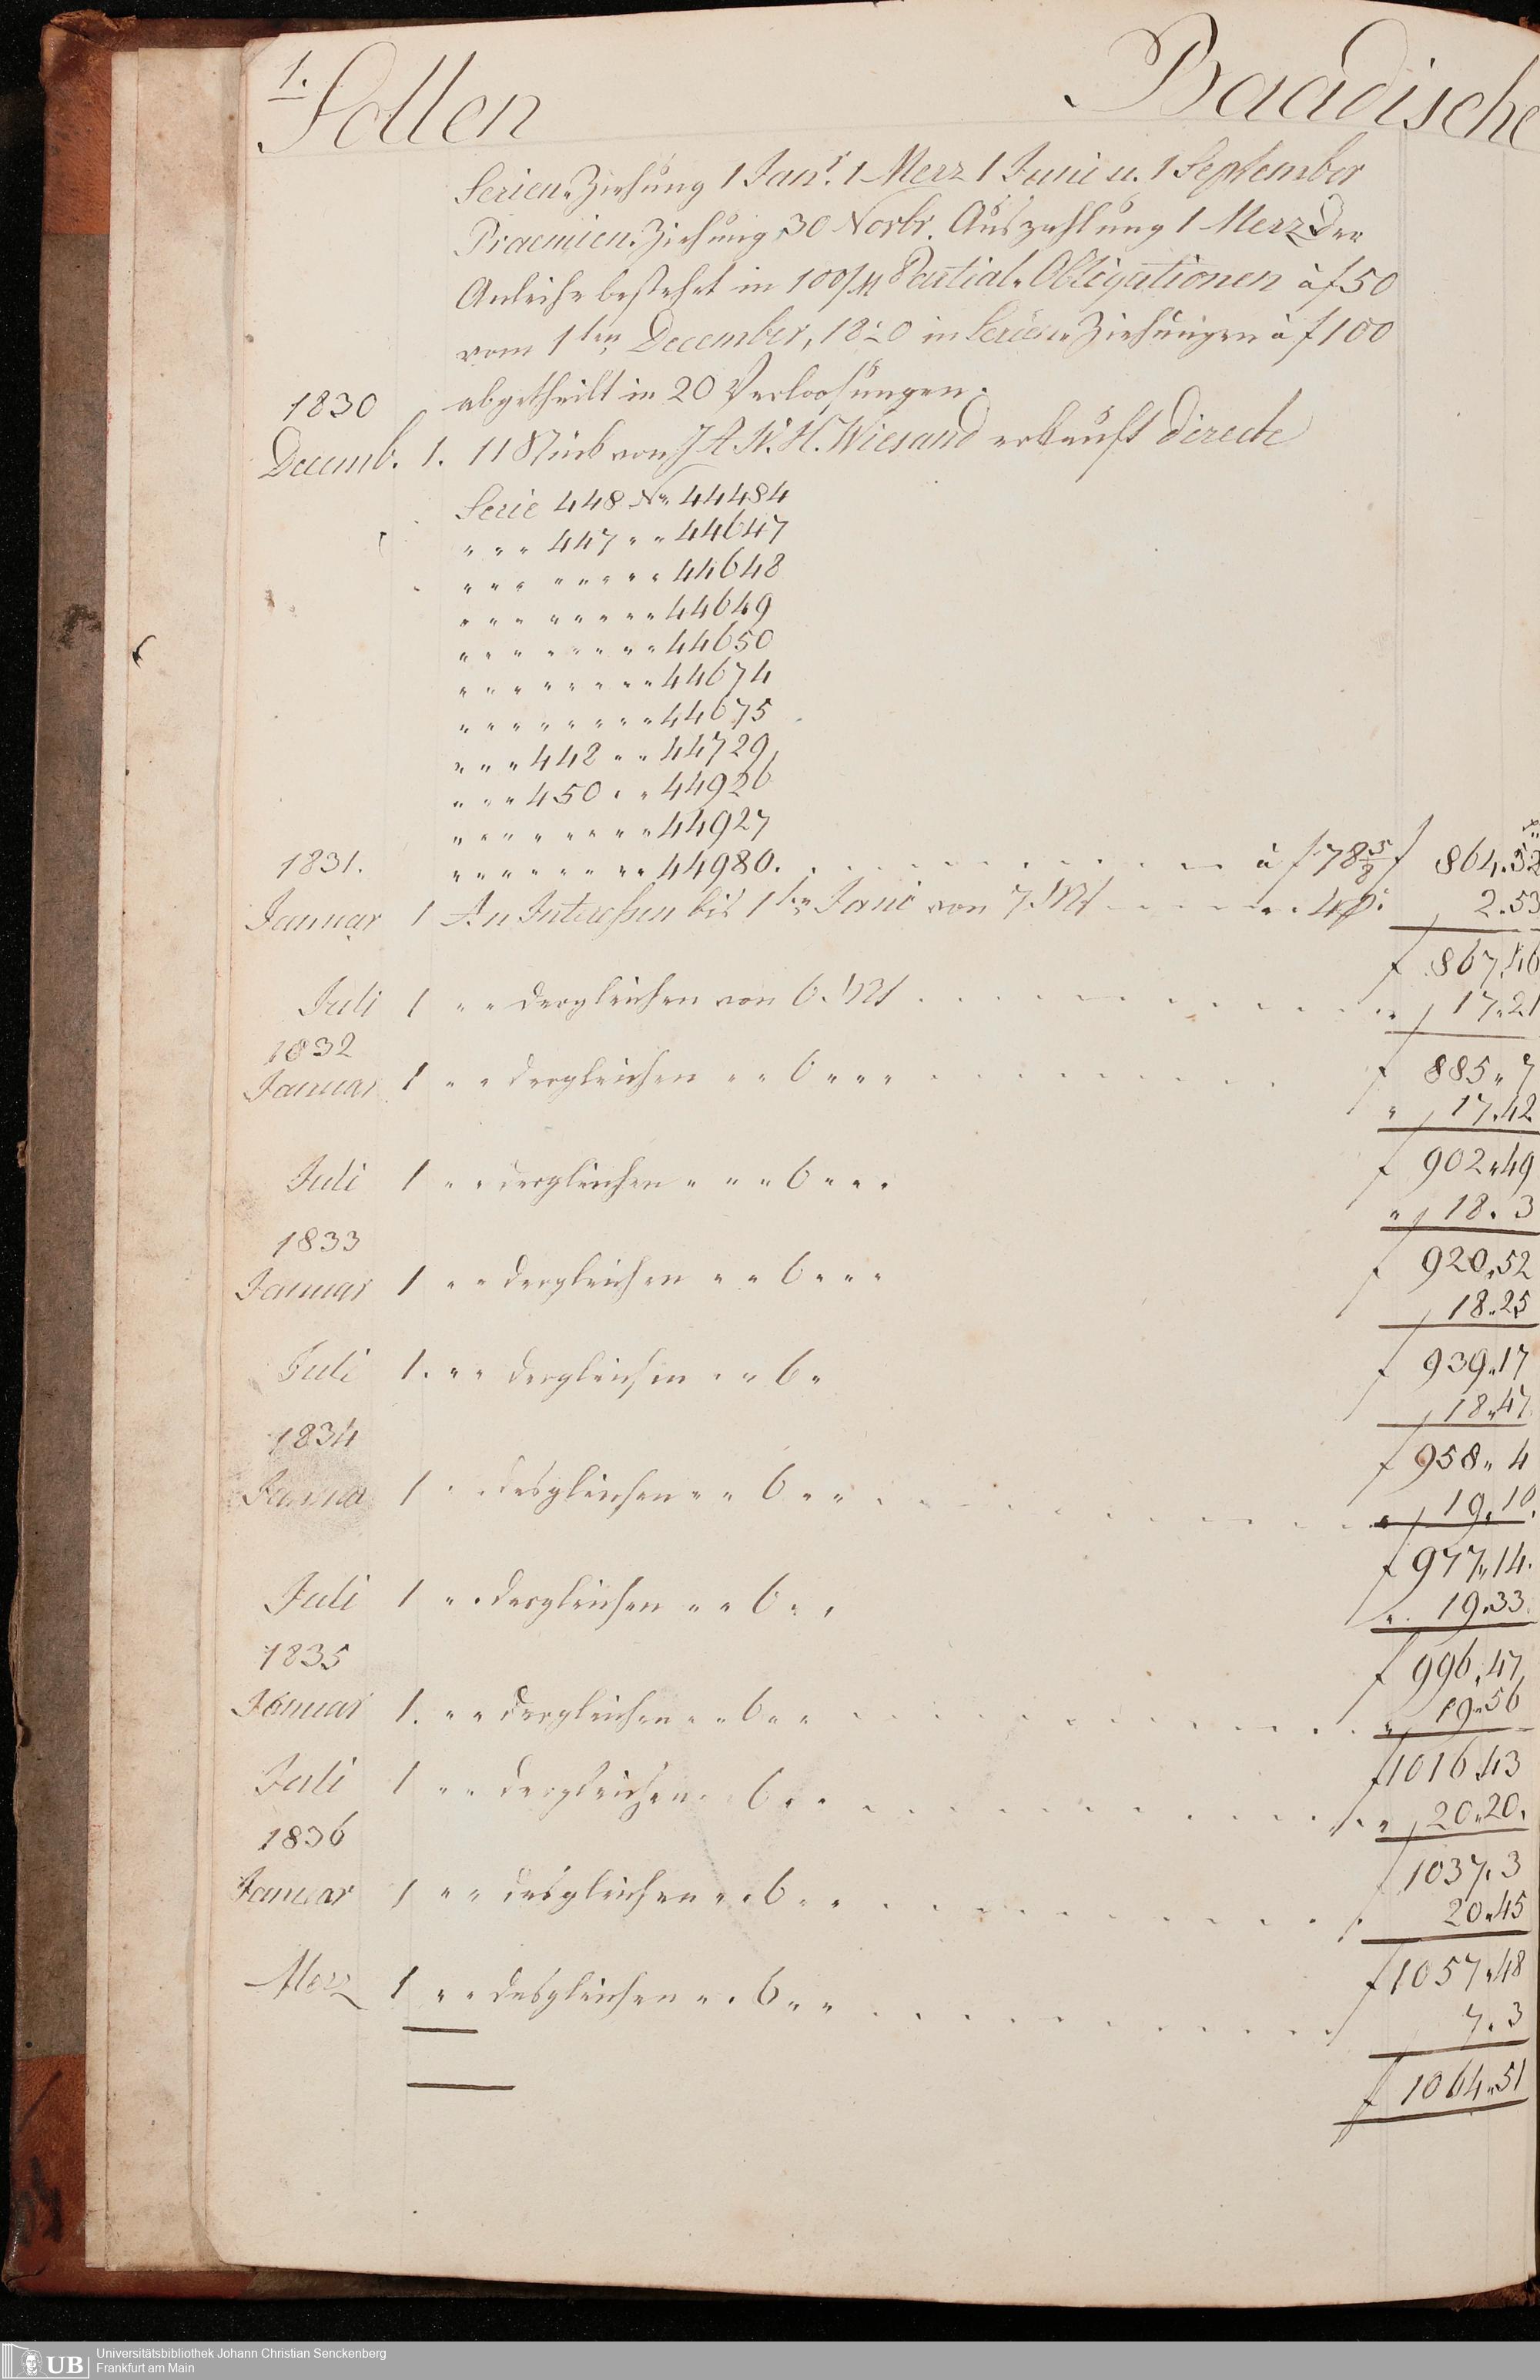 1.
Sollen Baadische
Serien„Ziehung 1 Janr. 1 Merz 1 Junie u. 1 September
Praemien„Ziehung 30 Novbr. Auszahlung 1 Merz Der
Anleihe besteht in 100/M Partial„Obligationen à f 50
vom 1ten December, 1820 in Serien„Ziehungen à f 100
abgetheilt in 20 Verloosungen.
1830
Decemb. 1. 11 Stück von J A W. H. Wiesand erkauft directe
Serie 448 No 44484
„ „ „ 447 „ „ 44647
„ „ „ „ „ „ „ „ 44648
„ „ „ „ „ „ „ „ 44649
„ „ „ „ „ „ „ „ 44650
„ „ „ „ „ „ „ „ 44674
„ „ „ „ „ „ „ „ 44675
„ „ „ 448 „ „ 44729
„ „ „ 450 „ „ 44926
„ „ „ „ „ „ „ „ 44927
1831. „ „ „ „ „ „ „ „ 44980. à f 78 5/8 f 864.52
Januar 1 An Interessen bis 1ten Janr von 7. Mt 4 p: 2.53
f 867.46
Juli 1 „ „ dergleichen von 6. Mt „ 17.21
1832 f 885„ 7
Januar 1 „ „ dergleichen „ „ 6 „ „ „ „ 17.42
f 902„49
Juli 1 „ „ dergleichen „ „ „ 6 „ „ „ „ 18. 3
1833 f 920.52
Januar 1 „ „ dergleichen „ „ 6 „ „ „ 18.25
f 939„17
Juli 1. „ „ dergleichen „ „ 6 „ 18„47
1834 f 958„ 4
Januar 1 „ „ desgleichen „ „ 6 „ „ „ 19.10.
f 977„14.
Juli 1 „ „ desgleichen „ „ 6 „ „ „ 19.33.
1835 f 996.47
Januar 1. „ „ dergleichen „ „ 6 „ „ „ 19„56
f 1016.43
Juli 1 „ „ dergleichen „ „ 6 „ „ „ 20„20.
1836 f 1037. 3
Januar 1 „ „ desgleichen „ „ 6 „ „ 20„45
f 1057„48
Merz 1 „ „ desgleichen „ „ 6 „ „ 7. 3
f 1064„51
UB Universitätsbibliothek Johann Christian Senckenberg
Frankfurt am Main